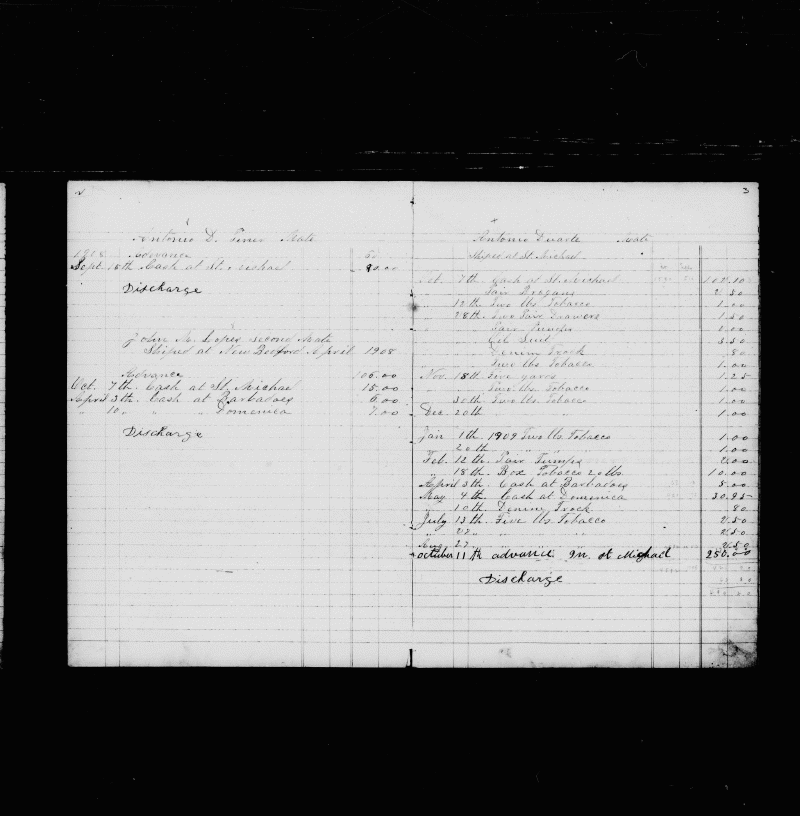 2
Antonio D. Mate
1908 Advance
Sept. 18th Cash at St. Michael 90.00
Discharge
John M. Lopes second Mate
Shiped at New Bedford April 1908
Advance 106.00
Oct. 7th Cash at St. Michael 15.00
April 3th Cash at Barbadoes 6.00
" 10 " " " Domenica 7.00
Discharge
3
Antonio Duarte Mate
Shiped at St. Michael
Oct. 7th Cash at St. Michael 102.10
Pair Brogans 2.30
" 12th Two lbs Tobacco 1.00
" 28th Two Pair Drawers 1.50
Pair
Oil Suit 3.50
Denim Frock .80
Two lbs Tobacco 1.00
Nov. 18th Five yards 1.25
Two lbs. Tobacco 1.00
" 30th Two lbs Tobacco 1.00
Dec. 20th " " " 1.00
Jan. 1th 1909 Two lbs Tobacco 1.00
" 20th " " " 1.00
Feb. 12th Pair Pumps 2.00
" 18th Box Tobacco 20 lbs. 10.00
April 3th Cash at Barbadoes 5.00
May 4th Cash at Domenica 30.95
" 10th Denim Frock .80
July 13th Five lbs. Tobacco 2.50
" 22 " " " 2.50
Aug 27 " " " 2.50
October 11th advance in St Michael 250.00
Discharge